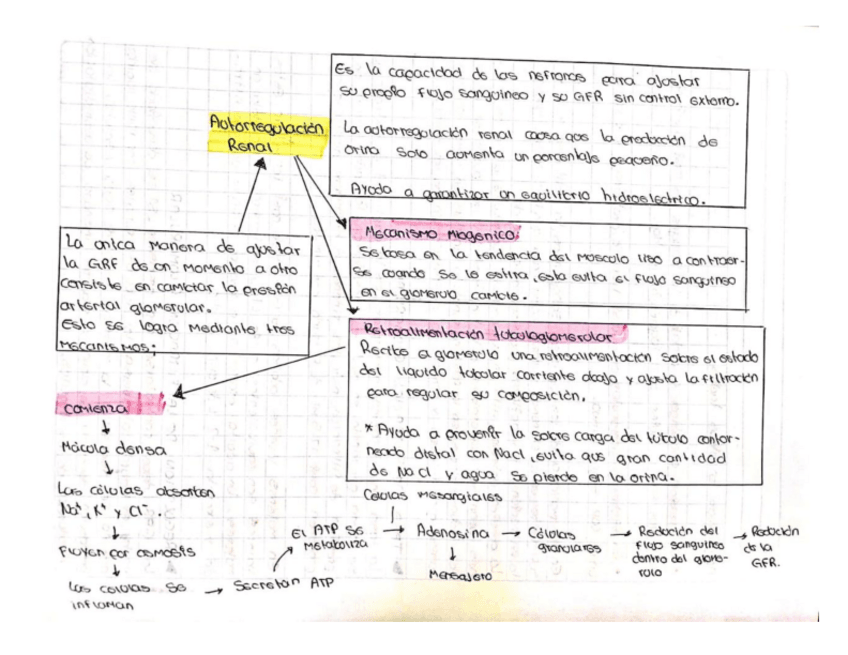 Autorregulación
Renal
Es la capacidad de las nefronas para ajustar
su propio flujo sanguineo y su GFR sin control externo.
La autorregulación renal causa que la producción de
orina solo aumenta un porcentaje pequeño.
Ayuda a garantizar un equilibrio hidroelectrico.
La unica manera de ajustar
la GRF de un momento a otro
consiste en cambiar la presión
arterial glomerular.
Esto se logra mediante tres
mecanismos:
Mecanismo miogenico:
Se basa en la tendencia del musculo liso a contraer-
se cuando se lo estira, esta evita el flujo sanguineo
en el glomerulo cambie.
Retroalimentación tubuloglomerular
Recibe a glomerulo una retroalimentación sobre el estado
del liquido tubular corriente abajo y ajusta la filtración
para regular su composición.
* Ayuda a prevenir la sobre carga del túbulo contor-
neado distal con NaCl, evita que gran cantidad
de NaCl y agua se pierda en la orina.
comienza
Mácula densa
Las células absorben
Na⁺, K⁺ y Cl⁻.
Fluyen por osmosis
Las celulas se
inflaman
Secretan ATP
El ATP se
metaboliza
Celulas mesangiales
Adenosina
Mensajero
Células
granulares
Reducción del
flujo sanguineo
dentro del glome-
rulo
Reducción
de la
GFR.